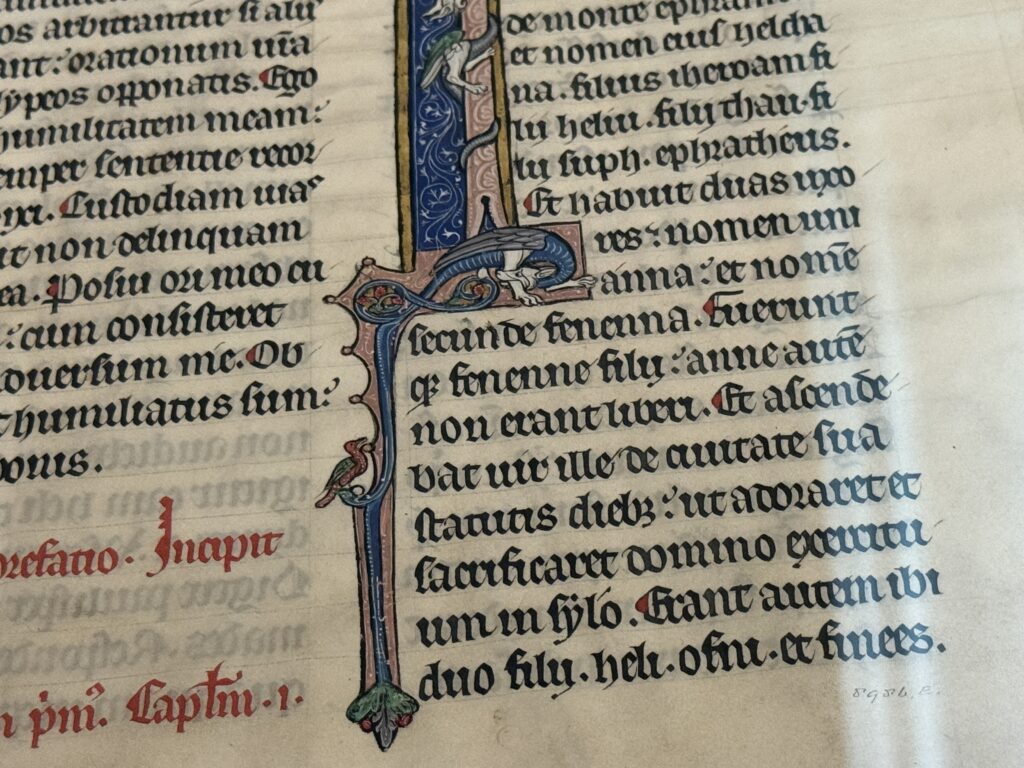 os arbitrantur si alii
ant: orationum ur̄a
lypeos opponatis. Ego
humilitatem meam:
emper sentencie recor
ixi. Custodiam uias
ut non delinquam
ea. Posui ori meo cu
: cum consisteret
duersum me. Ob
humiliatus sum:
bonis.
prefatio. Incipit
pm̄. Capłm. i.
de monte ephraim
et nomen eius helcha
na. filius iheroam fi
lij heliu. filij thau. fi
lij suph. ephratheus.
Et habuit duas uxo
res: nomen uni
anna: et nom̄e
secunde fenenna. Fuerunt
qꝫ fenenne filij: anne autē
non erant liberi. Et ascende
bat uir ille de ciuitate sua
statutis diebꝫ: ut adoraret et
sacrificaret domino exercitu
um in sylo. Erant autem ibi
duo filij. heli. ofni. et finees.